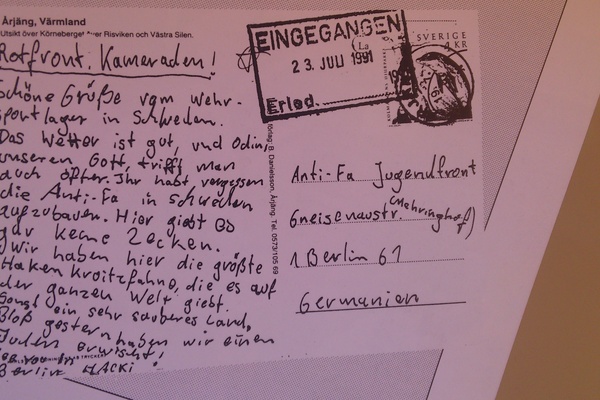 Årjäng, Värmland
Utsikt över Körneberget Risviken och Västra Silen.
Rotfront, Kameraden!
Schöne Grüße vom Wehr-
sportlager in Schweden.
Das Wetter ist gut, und Odin,
unseren Gott, trifft man
auch öfter. Ihr habt vergessen
die Anti-Fa in Schweden
aufzubauen. Hier giebt es
gar keine Zecken.
Wir haben hier die größte
Haken Kroitzfahne, die es auf
der ganzen Welt giebt.
Sonst ein sehr sauberes Land,
Bloß gestern haben wir einen
Juden erwischt!
Berlin MACKI
EINGEGANGEN
23. JULI 1991
Erled.
SVERIGE
KR
B. Danielsson, Årjäng. Tel. 0573/105 69
Anti-Fa Jugendfront
Gneisenaustr. (Mehringhof)
1 Berlin 61
Germanien